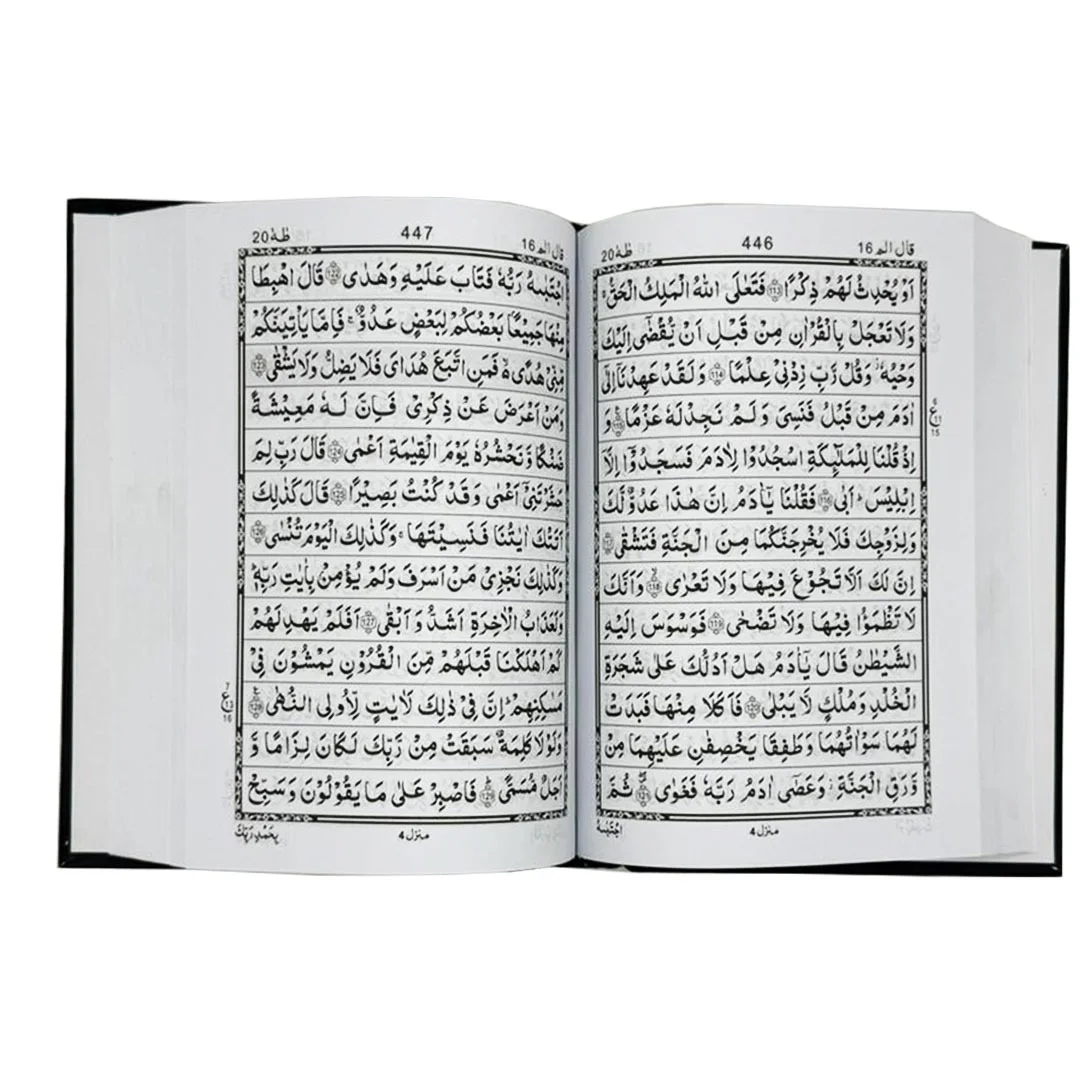 قال الم 16
446
طٰهٰ 20
اَوْ يُحْدِثُ لَهُمْ ذِكْرًا ﴿113﴾ فَتَعٰلَى اللّٰهُ الْمَلِكُ الْحَقُّ ۚ
وَلَا تَعْجَلْ بِالْقُرْاٰنِ مِنْ قَبْلِ اَنْ يُّقْضٰٓى اِلَيْكَ
وَحْيُهٗ ۡ وَقُلْ رَّبِّ زِدْنِيْ عِلْمًا ﴿114﴾ وَلَقَدْ عَهِدْنَآ اِلٰٓى
اٰدَمَ مِنْ قَبْلُ فَنَسِيَ وَلَمْ نَجِدْ لَهٗ عَزْمًا ﴿115﴾ وَ
اِذْ قُلْنَا لِلْمَلٰٓئِكَةِ اسْجُدُوْا لِاٰدَمَ فَسَجَدُوْٓا اِلَّآ
اِبْلِيْسَ ؕ اَبٰى ﴿116﴾ فَقُلْنَا يٰٓاٰدَمُ اِنَّ هٰذَا عَدُوٌّ لَّكَ
وَلِزَوْجِكَ فَلَا يُخْرِجَنَّكُمَا مِنَ الْجَنَّةِ فَتَشْقٰى ﴿117﴾
اِنَّ لَكَ اَلَّا تَجُوْعَ فِيْهَا وَلَا تَعْرٰى ﴿118﴾ وَاَنَّكَ
لَا تَظْمَؤُا فِيْهَا وَلَا تَضْحٰى ﴿119﴾ فَوَسْوَسَ اِلَيْهِ
الشَّيْطٰنُ قَالَ يٰٓاٰدَمُ هَلْ اَدُلُّكَ عَلٰى شَجَرَةِ
الْخُلْدِ وَمُلْكٍ لَّا يَبْلٰى ﴿120﴾ فَاَكَلَا مِنْهَا فَبَدَتْ
لَهُمَا سَوْاٰتُهُمَا وَطَفِقَا يَخْصِفٰنِ عَلَيْهِمَا مِنْ
وَّرَقِ الْجَنَّةِ ۡ وَعَصٰٓى اٰدَمُ رَبَّهٗ فَغَوٰى ﴿121﴾ ثُمَّ
6
ع
11
15
منزل 4
اجْتَبٰىهُ
قال الم 16
447
طٰهٰ 20
اجْتَبٰىهُ رَبُّهٗ فَتَابَ عَلَيْهِ وَهَدٰى ﴿122﴾ قَالَ اهْبِطَا
مِنْهَا جَمِيْعًۢا بَعْضُكُمْ لِبَعْضٍ عَدُوٌّ ۚ فَاِمَّا يَاْتِيَنَّكُمْ
مِّنِّيْ هُدًى ۙ فَمَنِ اتَّبَعَ هُدَايَ فَلَا يَضِلُّ وَلَا يَشْقٰى ﴿123﴾
وَمَنْ اَعْرَضَ عَنْ ذِكْرِيْ فَاِنَّ لَهٗ مَعِيْشَةً
ضَنْكًا وَّنَحْشُرُهٗ يَوْمَ الْقِيٰمَةِ اَعْمٰى ﴿124﴾ قَالَ رَبِّ لِمَ
حَشَرْتَنِيْٓ اَعْمٰى وَقَدْ كُنْتُ بَصِيْرًا ﴿125﴾ قَالَ كَذٰلِكَ
اَتَتْكَ اٰيٰتُنَا فَنَسِيْتَهَا ۚ وَكَذٰلِكَ الْيَوْمَ تُنْسٰى ﴿126﴾
وَكَذٰلِكَ نَجْزِيْ مَنْ اَسْرَفَ وَلَمْ يُؤْمِنْۢ بِاٰيٰتِ رَبِّهٖ ؕ
وَلَعَذَابُ الْاٰخِرَةِ اَشَدُّ وَاَبْقٰى ﴿127﴾ اَفَلَمْ يَهْدِ لَهُمْ
كَمْ اَهْلَكْنَا قَبْلَهُمْ مِّنَ الْقُرُوْنِ يَمْشُوْنَ فِيْ
مَسٰكِنِهِمْ ؕ اِنَّ فِيْ ذٰلِكَ لَاٰيٰتٍ لِّاُولِي النُّهٰى ﴿128﴾
وَلَوْلَا كَلِمَةٌ سَبَقَتْ مِنْ رَّبِّكَ لَكَانَ لِزَامًا وَّ
اَجَلٌ مُّسَمًّى ﴿129﴾ فَاصْبِرْ عَلٰى مَا يَقُوْلُوْنَ وَسَبِّحْ
7
ع
13
16
منزل 4
بِحَمْدِ رَبِّكَ